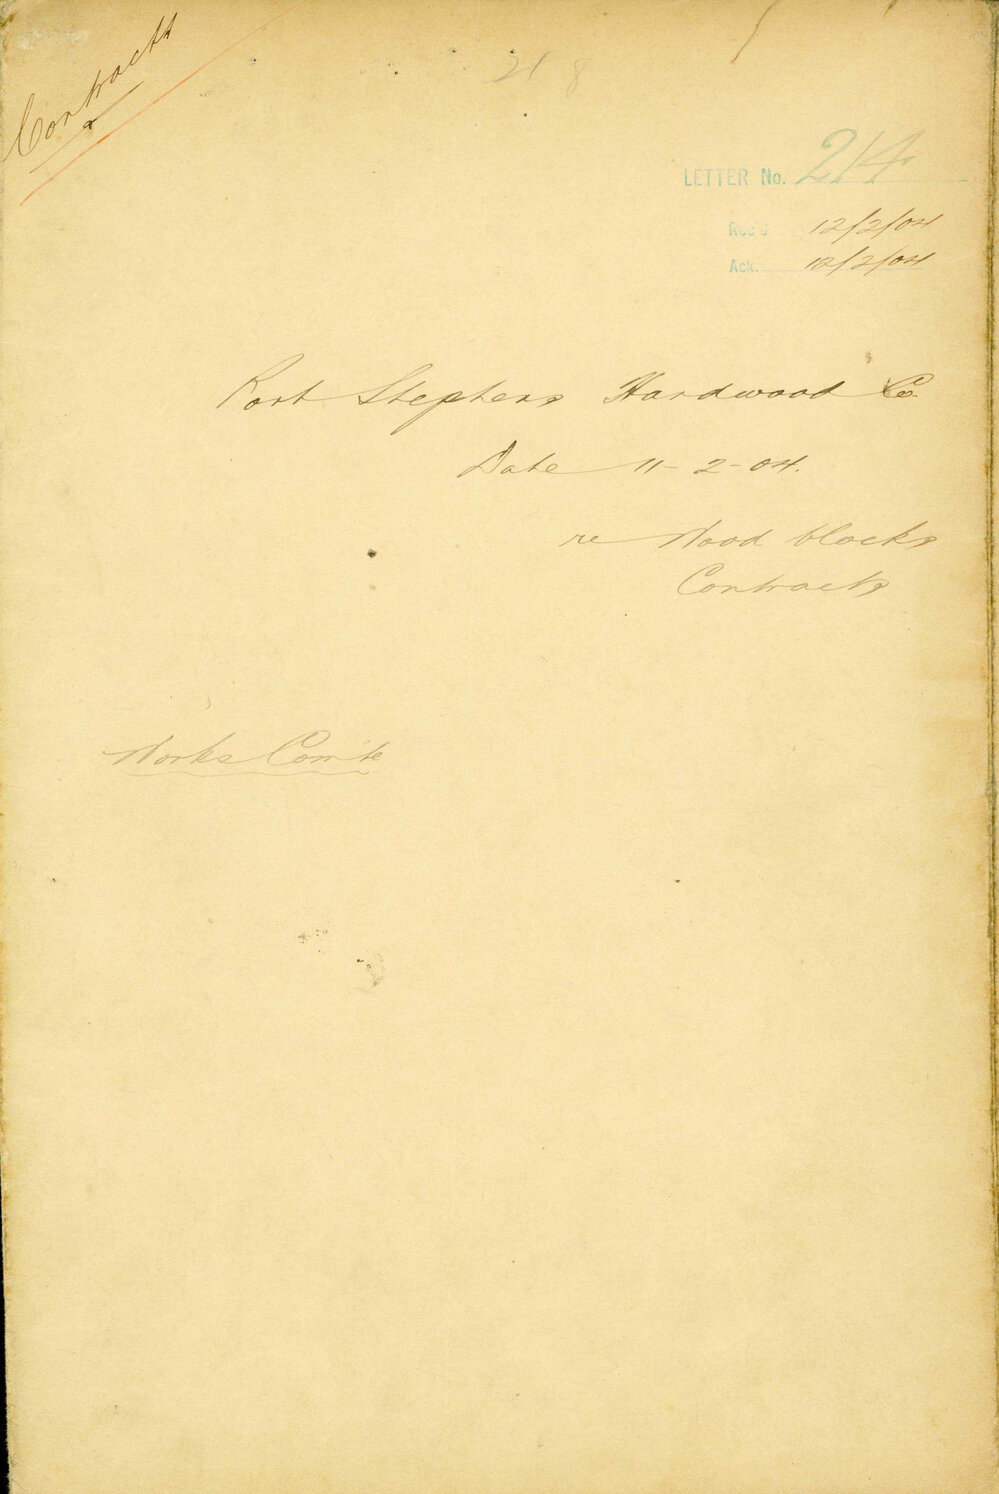 Contracts
218
LETTER No. 214
Rec'd 12/2/04
Ack. 12/2/04
Port Stephens Hardwood Co
Date 11-2-04.
re Wood blocks
Contracts
Works Comte